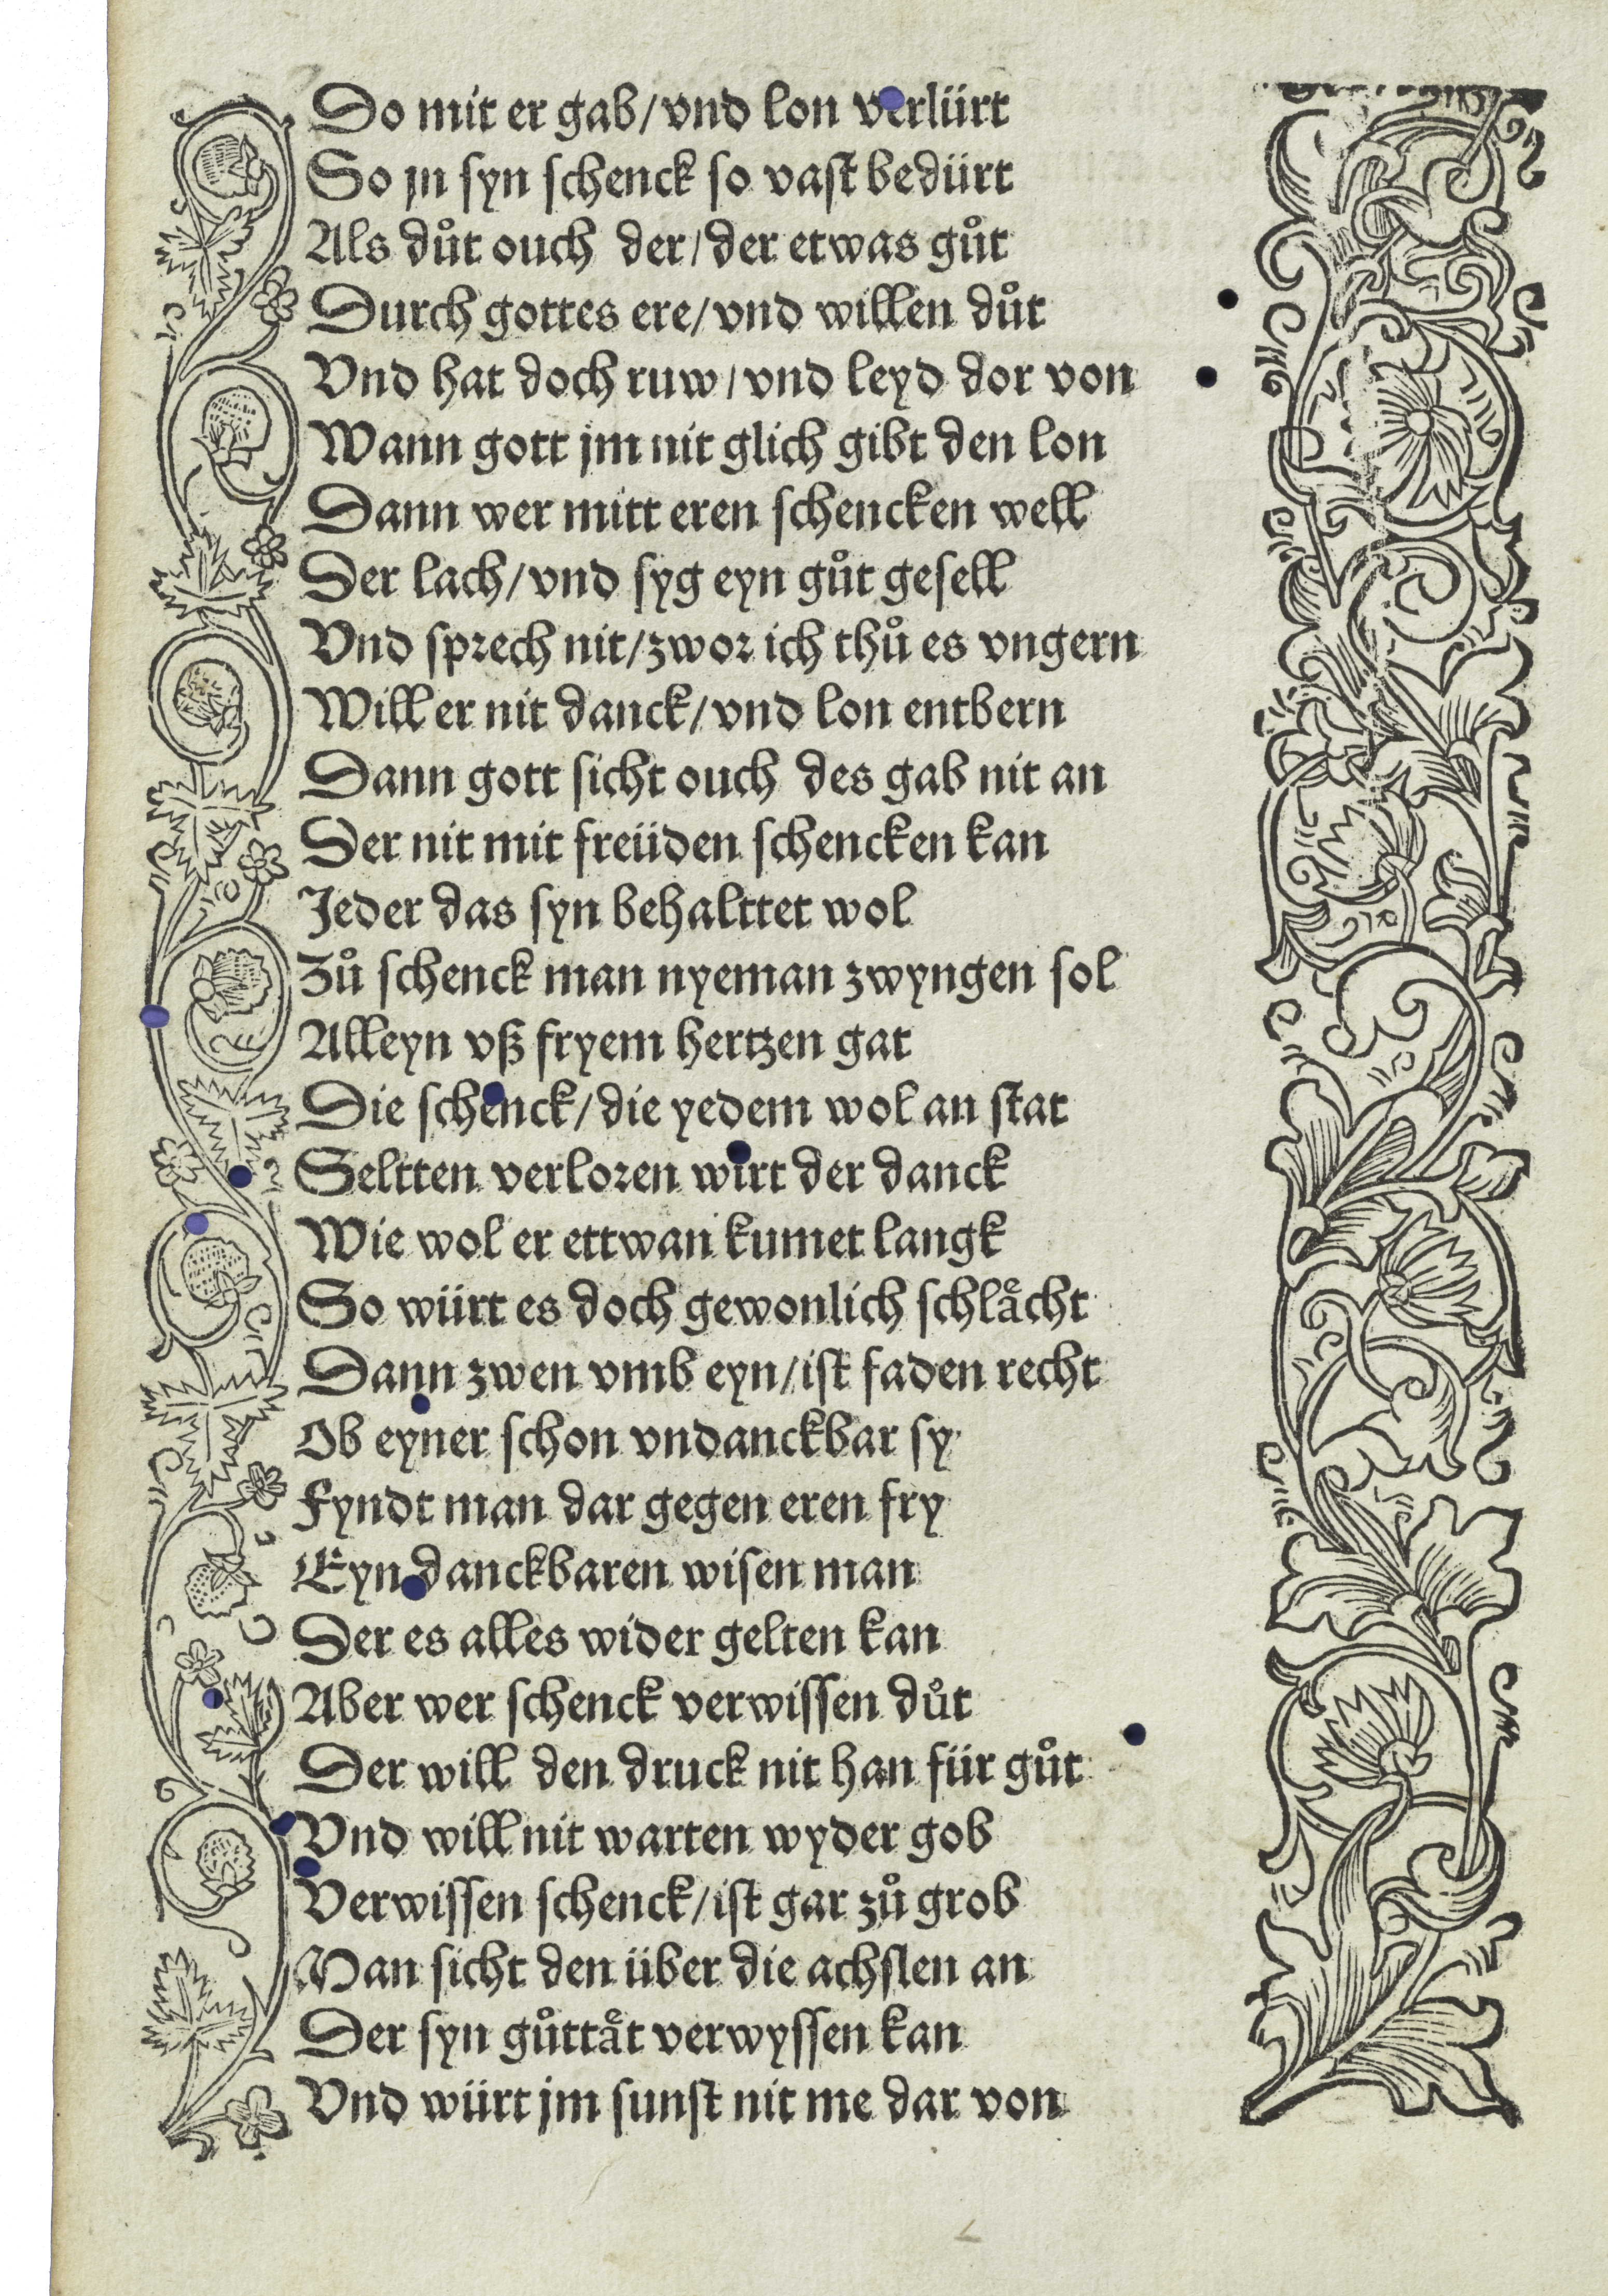 Do mit er gab/vnd lon verlürt
So jn syn schenck so vast bedürt
Als důt ouch der/der etwas gůt
Durch gottes ere/vnd willen důt
Vnd hat doch ruw/vnd leyd dor von
Wann gott jm nit glich gibt den lon
Dann wer mitt eren schencken well
Der lach/vnd syg eyn gůt gesell
Vnd sprech nit/zwor ich thů es vngern
Will er nit danck/vnd lon entbern
Dann gott sicht ouch des gab nit an
Der nit mit freüden schencken kan
Jeder das syn behalttet wol
Zů schenck man nyeman zwyngen sol
Alleyn vß fryem hertzen gat
Die schenck/die yedem wol an stat
Seltten verloren wirt der danck
Wie wol er ettwan kumet langk
So würt es doch gewonlich schlåcht
Dann zwen vmb eyn/ist faden recht
Ob eyner schon vndanckbar sy
Fyndt man dar gegen eren fry
Eyn danckbaren wisen man
Der es alles wider gelten kan
Aber wer schenck verwissen důt
Der will den druck nit han für gůt
Vnd will nit warten wyder gob
Verwissen schenck/ist gar zů grob
Man sicht den über die achslen an
Der syn gůttåt verwyssen kan
Vnd würt jm sunst nit me dar von